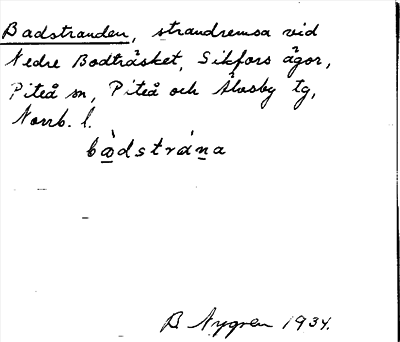 Badstranden, strandremsa vid
Nedre Bodträsket, Sikfors ägor,
Piteå sn, Piteå och Älvsby tg,
Norrb. l.
bàdstrána
B Nygren 1934.